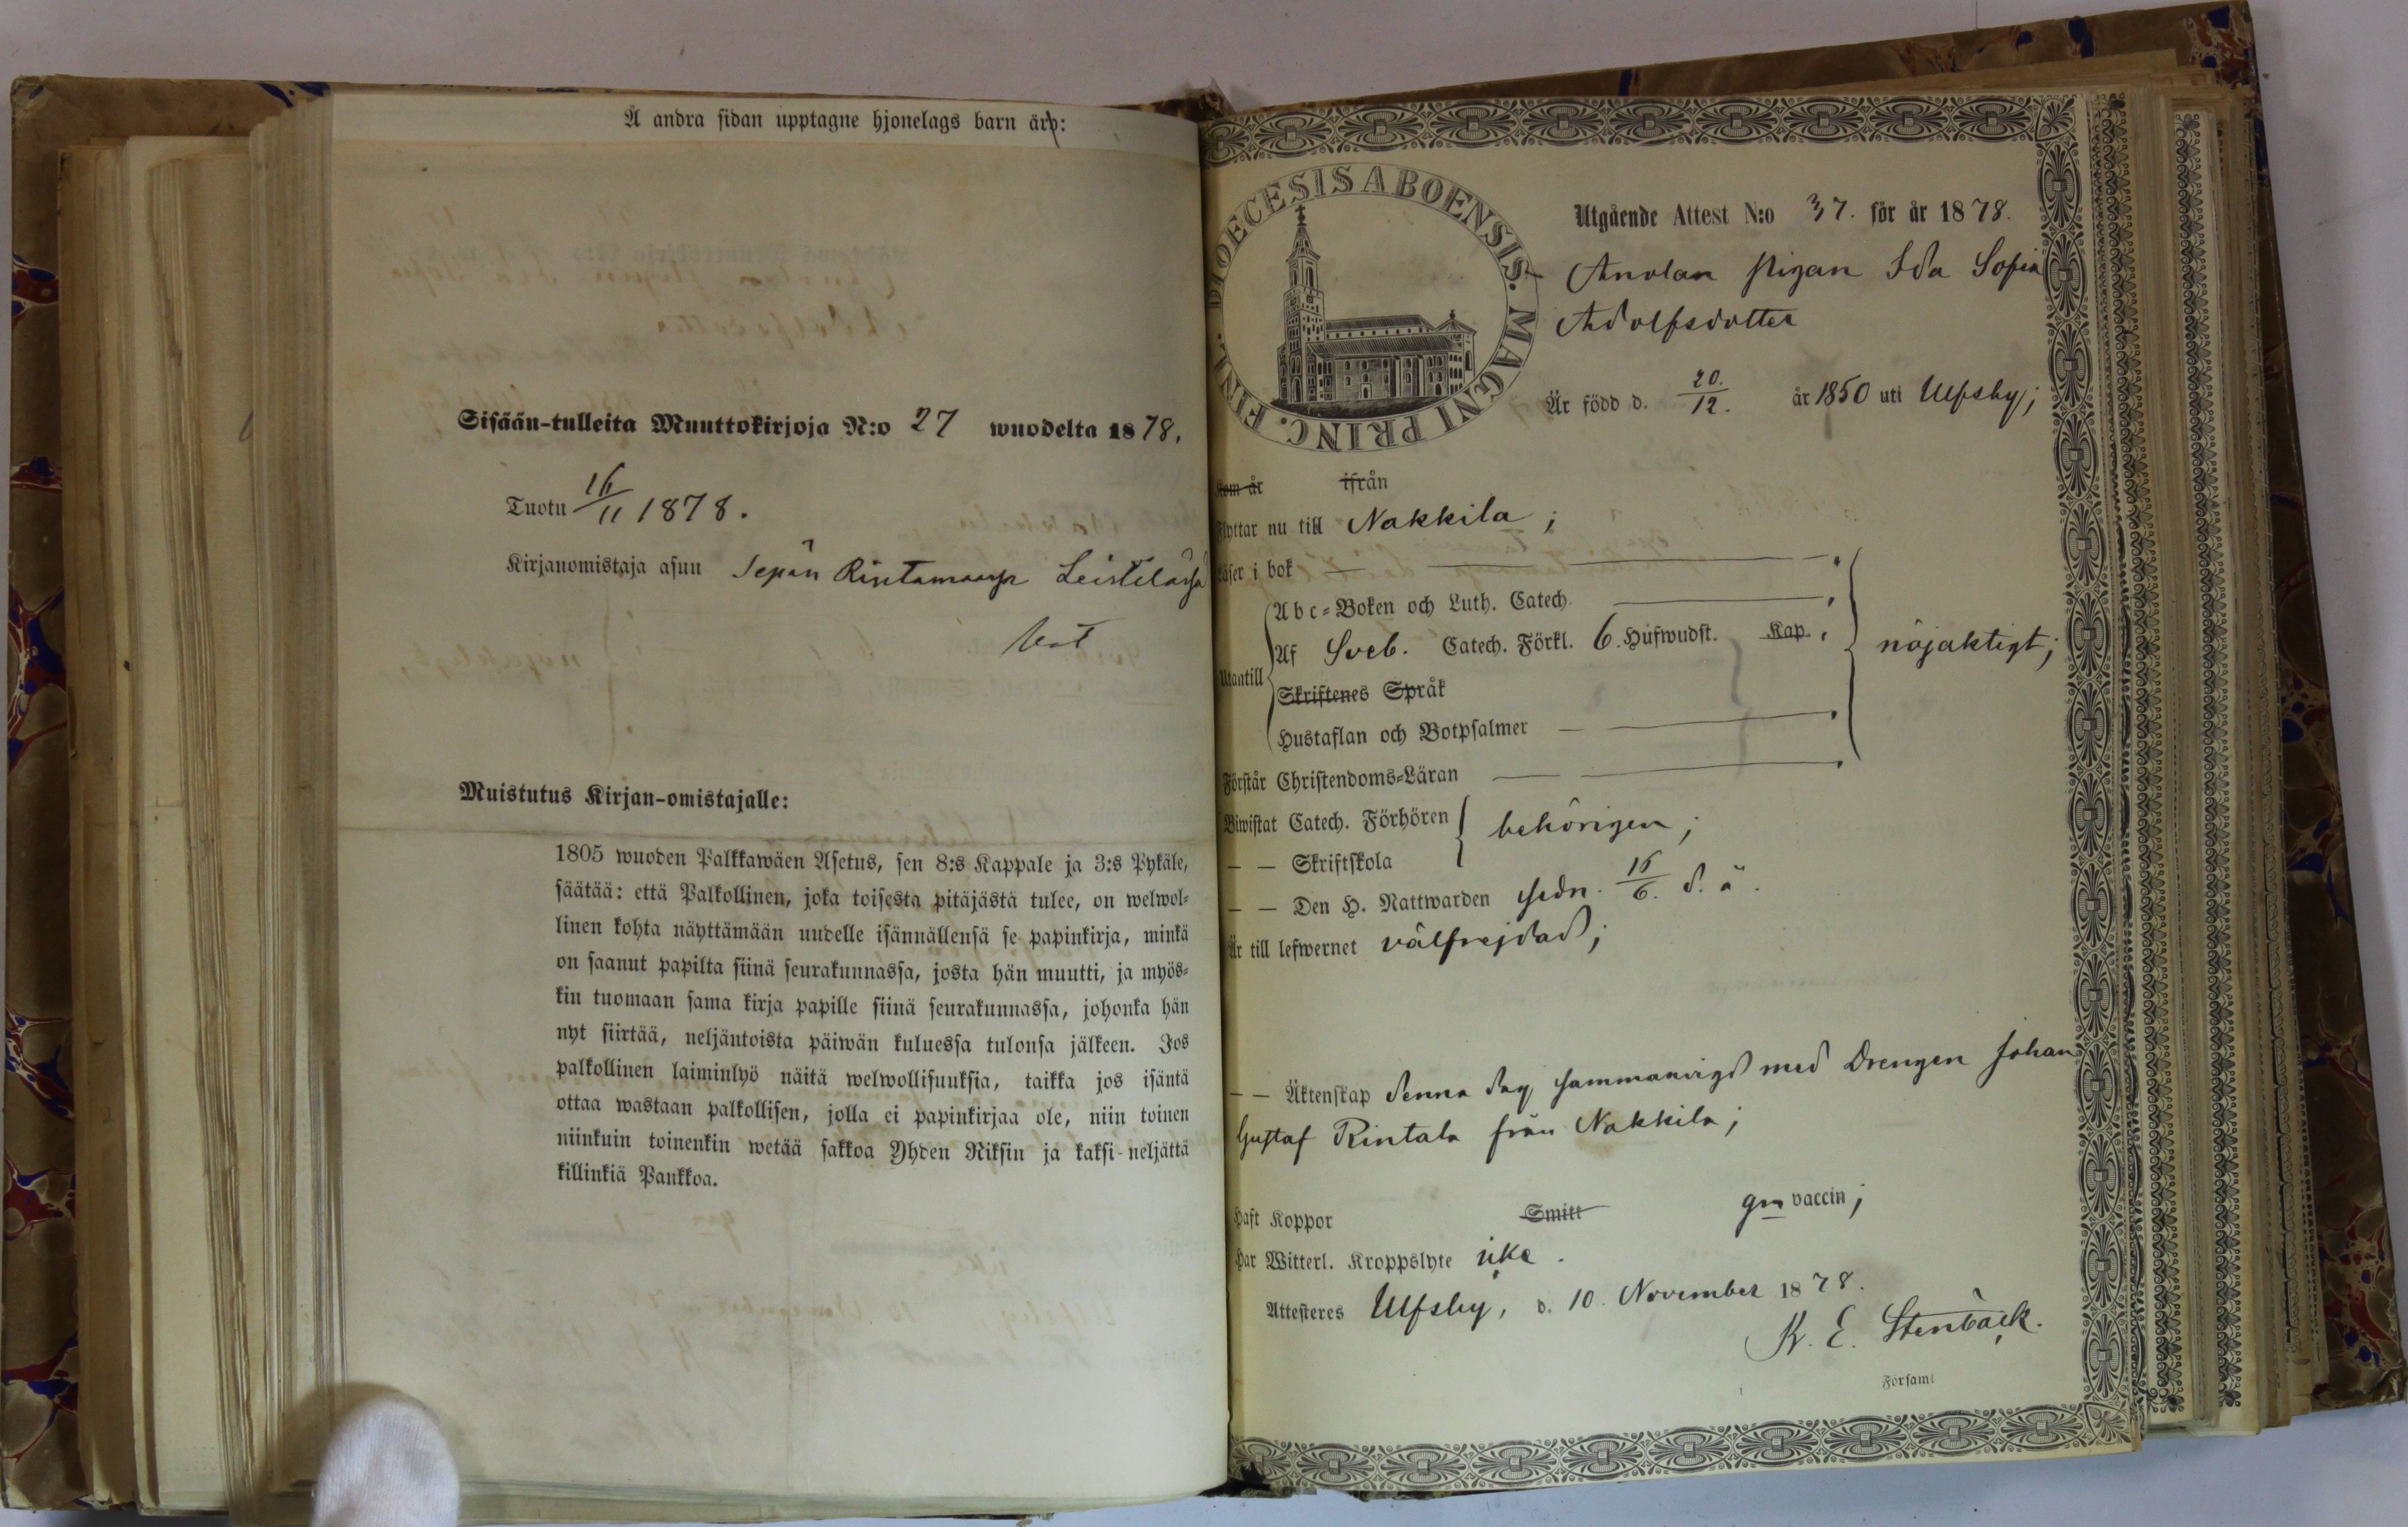 Å andra sidan upptagne hjonelags barn äro:
Sisään-tulleita Muuttokirjoja N:o 27 wuodelta 1878.
Tuotu 16/11 1878.
Kirjanomistaja asuu Sepän Rintamaasa Leistiläsä
Muistutus Kirjan-omistajalle:
1805 wuoden Palkkawäen Asetus, sen 8:s Kappale ja 3:s Pykäle,
säätää: että Palkollinen, joka toisesta pitäjästä tulee, on welwol-
linen kohta näyttämään uudelle isännällensä se papinkirja, minkä
on saanut papilta siinä seurakunnassa, josta hän muutti, ja myös-
kin tuomaan sama kirja papille siinä seurakunnassa, johonka hän
nyt siirtää, neljäntoista päiwän kuluessa tulonsa jälkeen. Jos
palkollinen laiminlyö näitä welwollisuuksia, taikka jos isäntä
ottaa wastaan palkollisen, jolla ei papinkirjaa ole, niin toinen
niinkuin toinenkin wetää sakkoa Yhden Riksin ja kaksi-neljättä
killinkiä Pankkoa.
DIOECESIS ABOENSIS. MAGNI PRINC. FINL.
Utgående Attest N:o 37. för år 1878.
Anolan pigan Ida Sofia
Adolfsdotter
Är född d. 20./12. år 1850 uti Ulfsby;
Kom år ifrån
Flyttar nu till Nakkila;
Läser i bok
Abc-Boken och Luth. Catech.
Utantill Af Sveb. Catech. Förkl. 6. Hufwudst. Kap. nöjaktigt;
Skriftenes Språk
Hustaflan och Botpsalmer
Förstår Christendoms-Läran
Biwistat Catech. Förhören behörigen;
— — Skriftskola
— — Den H. Nattwarden sedn. 16/6. d. å.
Är till lefwernet välfrejdad;
— — Äktenskap denna dag sammanvigd med Drengen Johan
Gustaf Rintala från Nakkila;
Haft Koppor Smitt gm vaccin;
Har Witterl. Kroppslyte icke.
Attesteres Ulfsby, d. 10. November 1878.
K. E. Stenbäck.
Forsaml